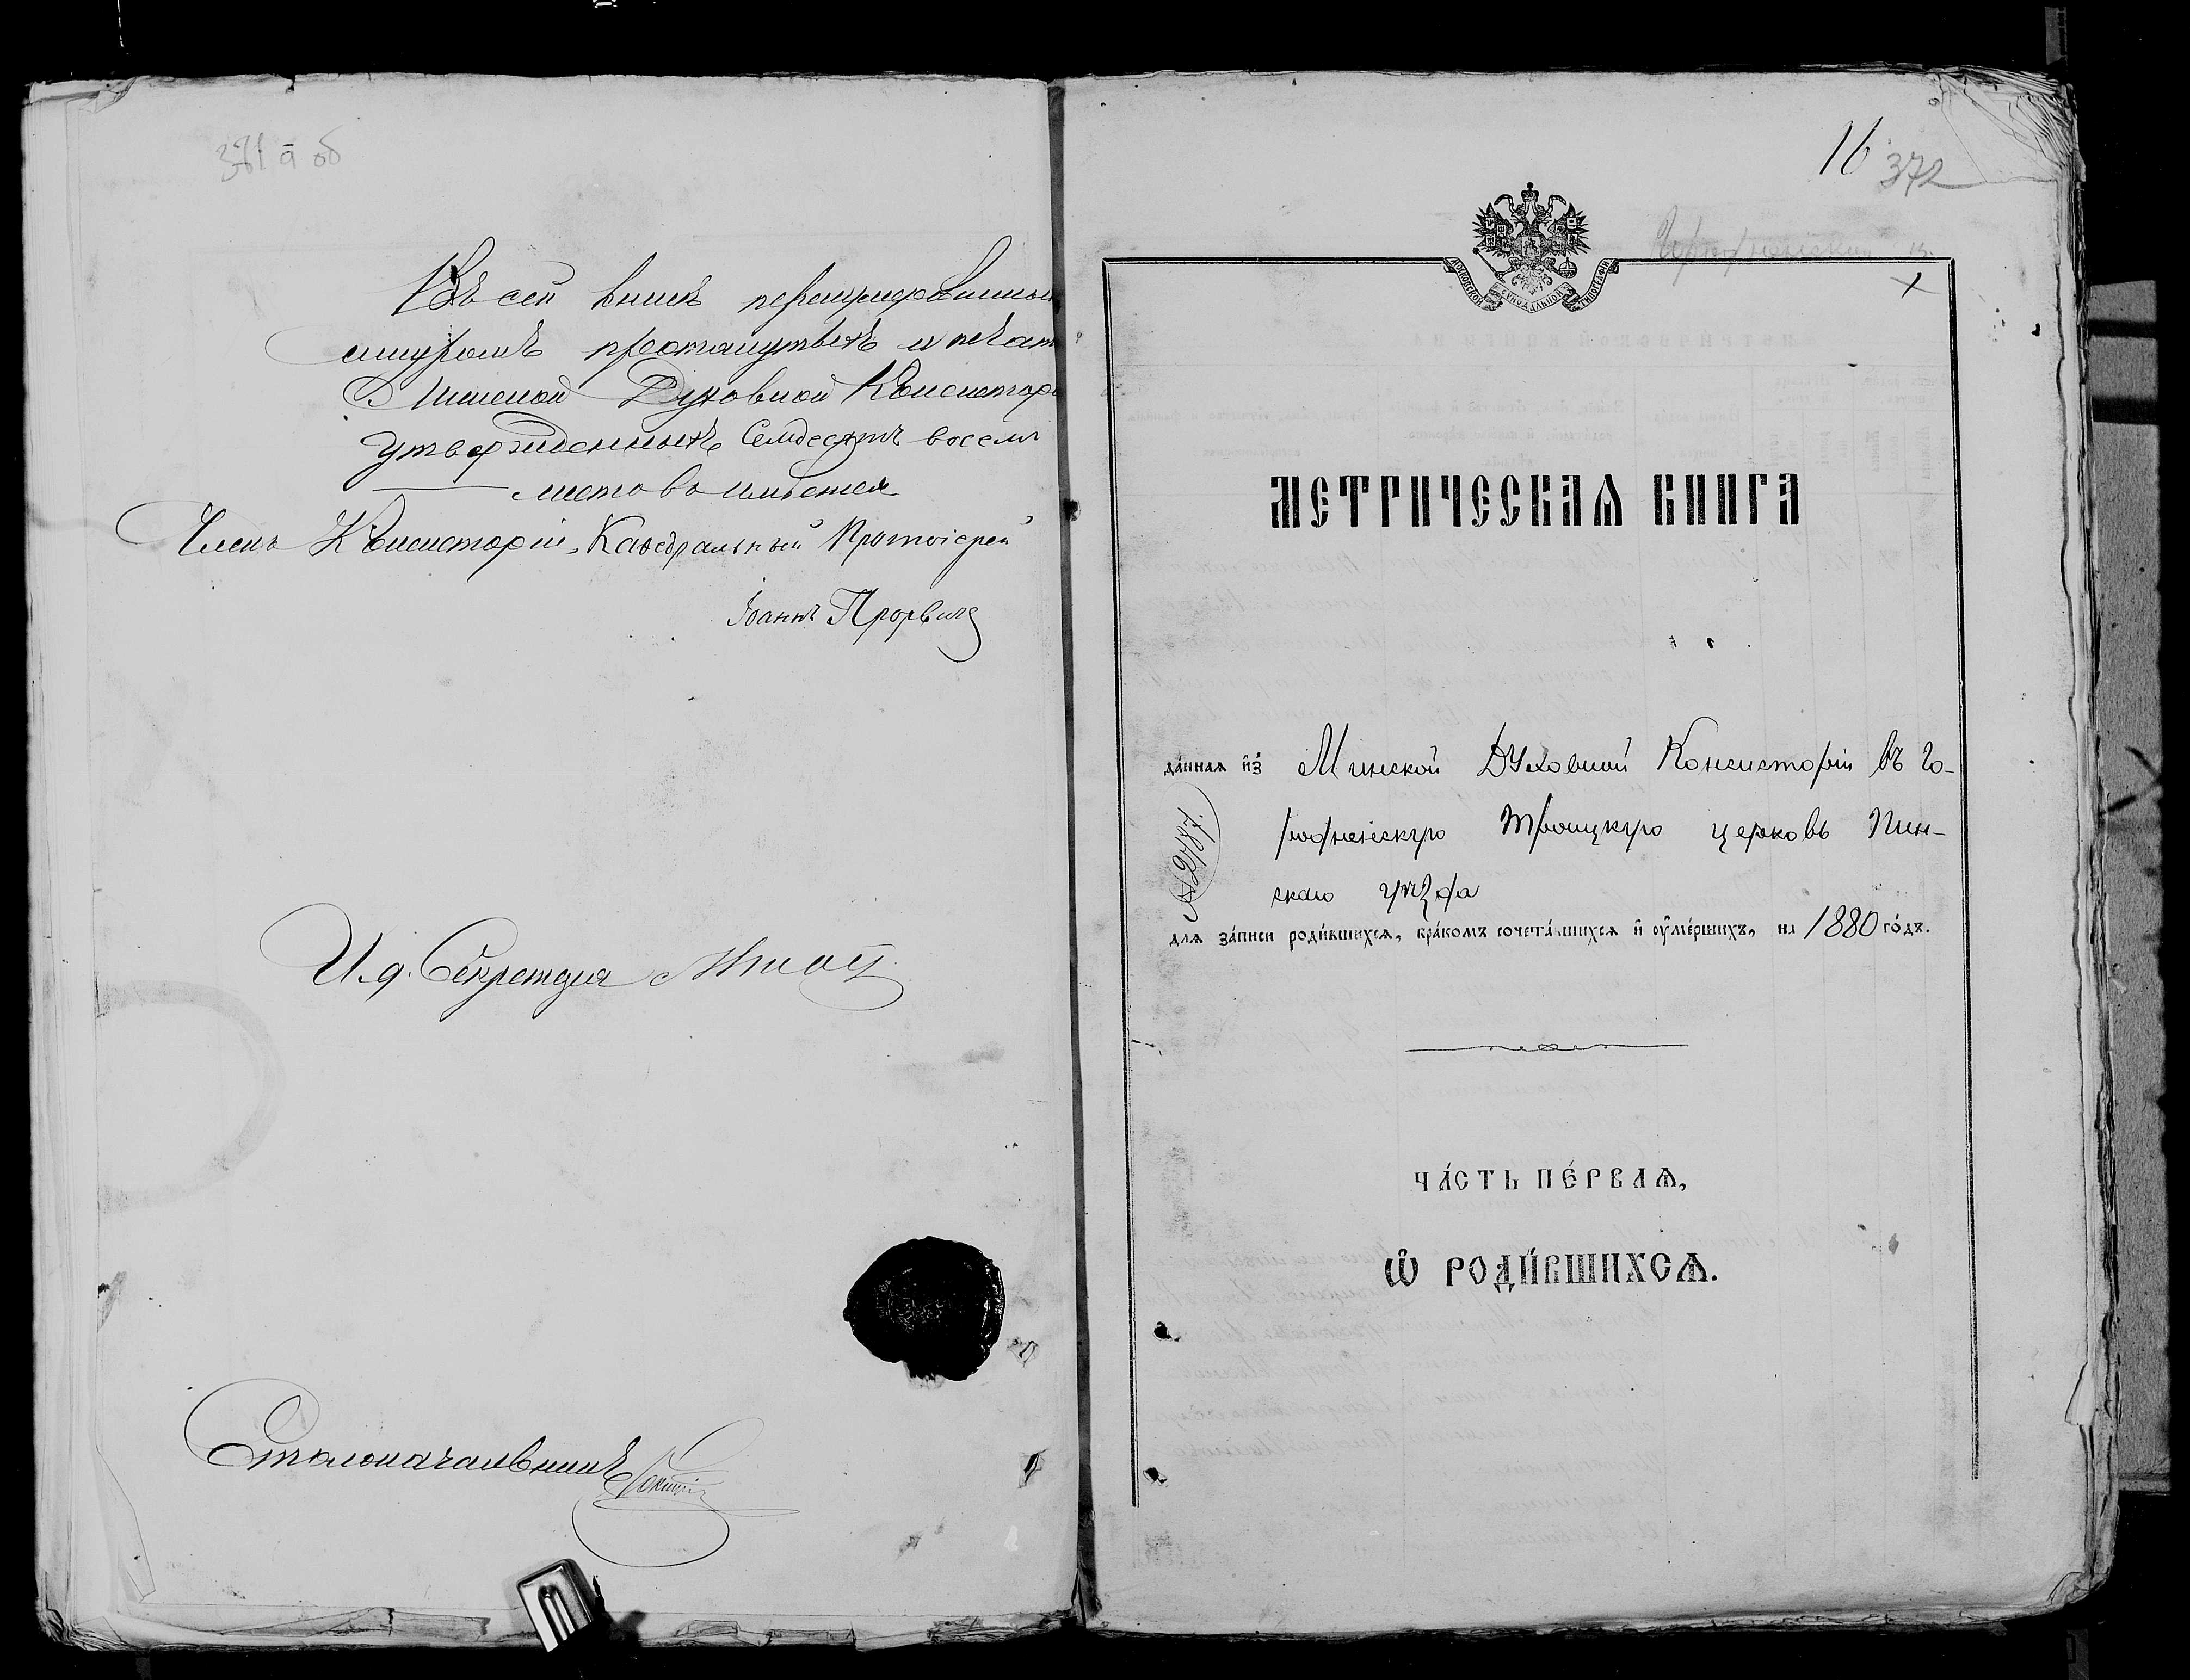 371 а об
Въ сей книгѣ перенумерованной
шнуромъ простянутыхъ и печат
Минской Духовной Консистор
утвержденныхъ Семдесятъ восемь
листовъ имѣется
Членъ Консисторіи, Каѳедральный Протоіерей
Іоаннъ
И. д. Секретаря
Столоначальникъ
16
372
МОСКОВСКОЙ СѴНОДАЛЬНОЙ ТИПОГРАФІИ
МЕТРИЧЕСКАѦ КНИГА
да́ннаѧ и҆з̾ Минской Духовной Консисторіи въ Го-
родненскую Троицкую церковь Пин-
скаго уѣзда
№ 2187.
длѧ за́писи роди́вшихсѧ, бра́комъ сочета́вшихсѧ и҆ ᲂу҆ме́ршихъ, на 1880 го́дъ.
ЧА́СТЬ ПЕ́РВАѦ,
Ѽ РОДИ́ВШИХСѦ.